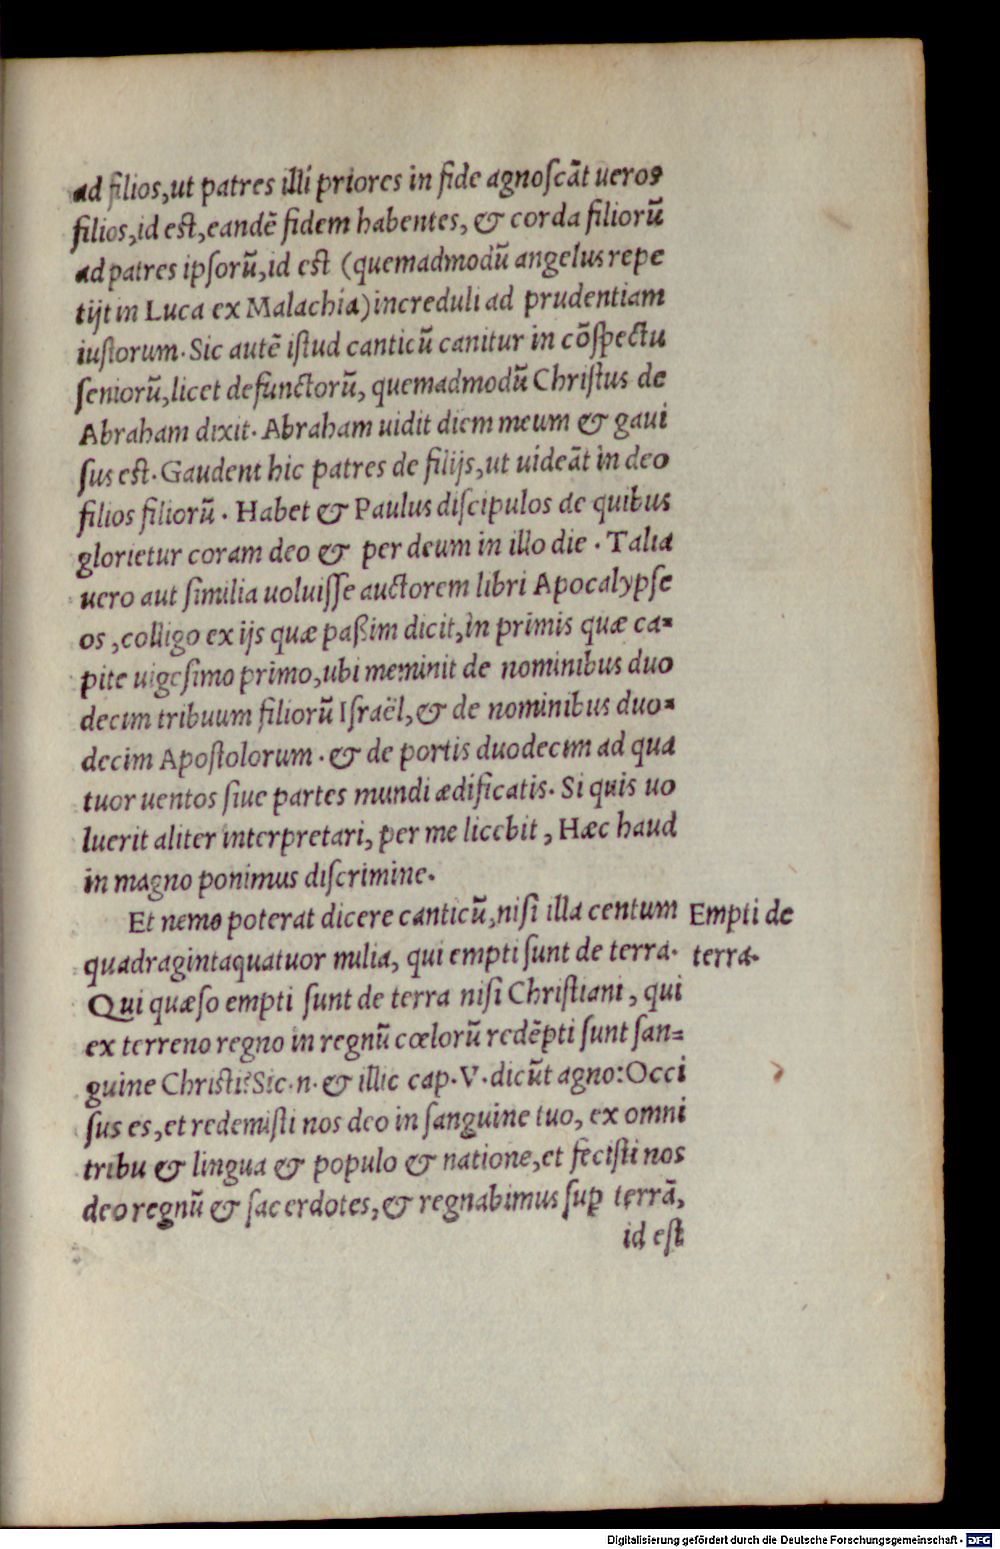 ad filios,ut patres illi priores in fide agnoſcāt ueros
filios,id eſt,eandē fidem habentes, & corda filiorū
ad patres ipſorū,id eſt (quemadmodū angelus repe
tijt in Luca ex Malachia)increduli ad prudentiam
iuſtorum. Sic autē iſtud canticū canitur in cōſpectu
ſeniorū,licet defunctorū, quemadmodū Chriſtus de
Abraham dixit. Abraham uidit diem meum & gaui
ſus eſt. Gaudent hic patres de filijs,ut uideāt in deo
filios filiorū . Habet & Paulus diſcipulos de quibus
glorietur coram deo & per deum in illo die . Talia
uero aut ſimilia uoluiſſe auctorem libri Apocalypſe
os ,colligo ex ijs quæ paßim dicit,in primis quæ ca=
pite uigeſimo primo,ubi meminit de nominibus duo
decim tribuum filiorū Iſraël,& de nominibus duo=
decim Apoſtolorum . & de portis duodecim ad qua
tuor uentos ſiue partes mundi ædificatis. Si quis uo
luerit aliter interpretari, per me licebit , Hæc haud
in magno ponimus diſcrimine.
Et nemo poterat dicere canticū,niſi illa centum
quadragintaquatuor milia, qui empti ſunt de terra.
Empti de
terra.
Qui quæſo empti ſunt de terra niſi Chriſtiani , qui
ex terreno regno in regnū cœlorū redēpti ſunt ſan=
guine Chriſti?Sic.n. & illic cap.V.dicūt agno:Occi
ſus es,et redemiſti nos deo in ſanguine tuo, ex omni
tribu & lingua & populo & natione,et feciſti nos
deo regnū & ſacerdotes,& regnabimus ſuꝑ terrā,
id eſt
Digitalisierung gefördert durch die Deutsche Forschungsgemeinschaft - DFG